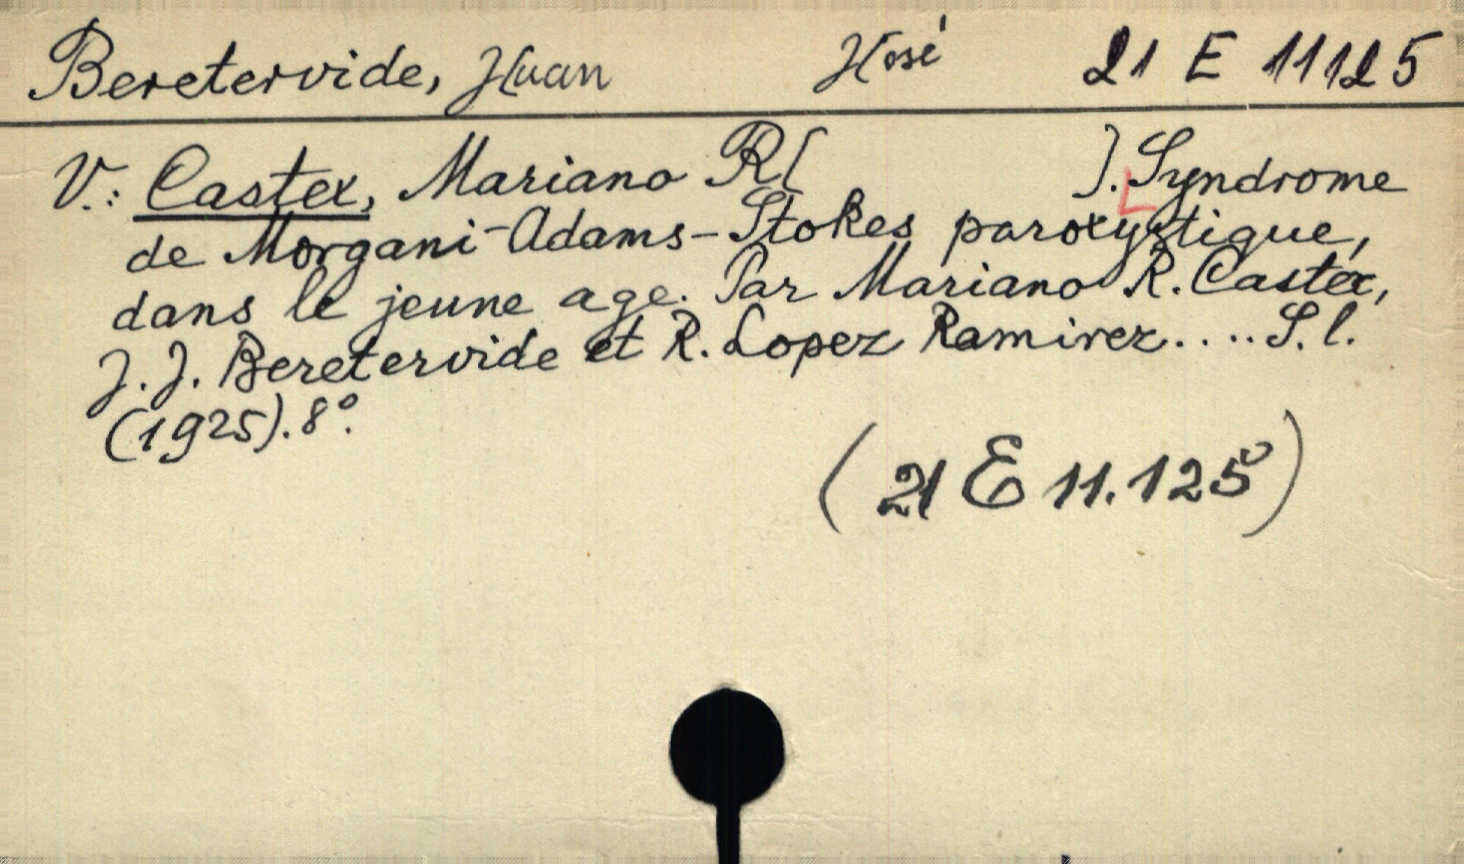 Beretervide, Juan José 21 E 11125
V.: Castex, Mariano R[ ]. Syndrome
de Morgani-Adams-Stokes paroxystique,
dans le jeune age. Par Mariano R. Castex,
J. J. Beretervide et R. Lopez Ramirez.... S. l.
(1925). 8º.
(21 E 11.125)